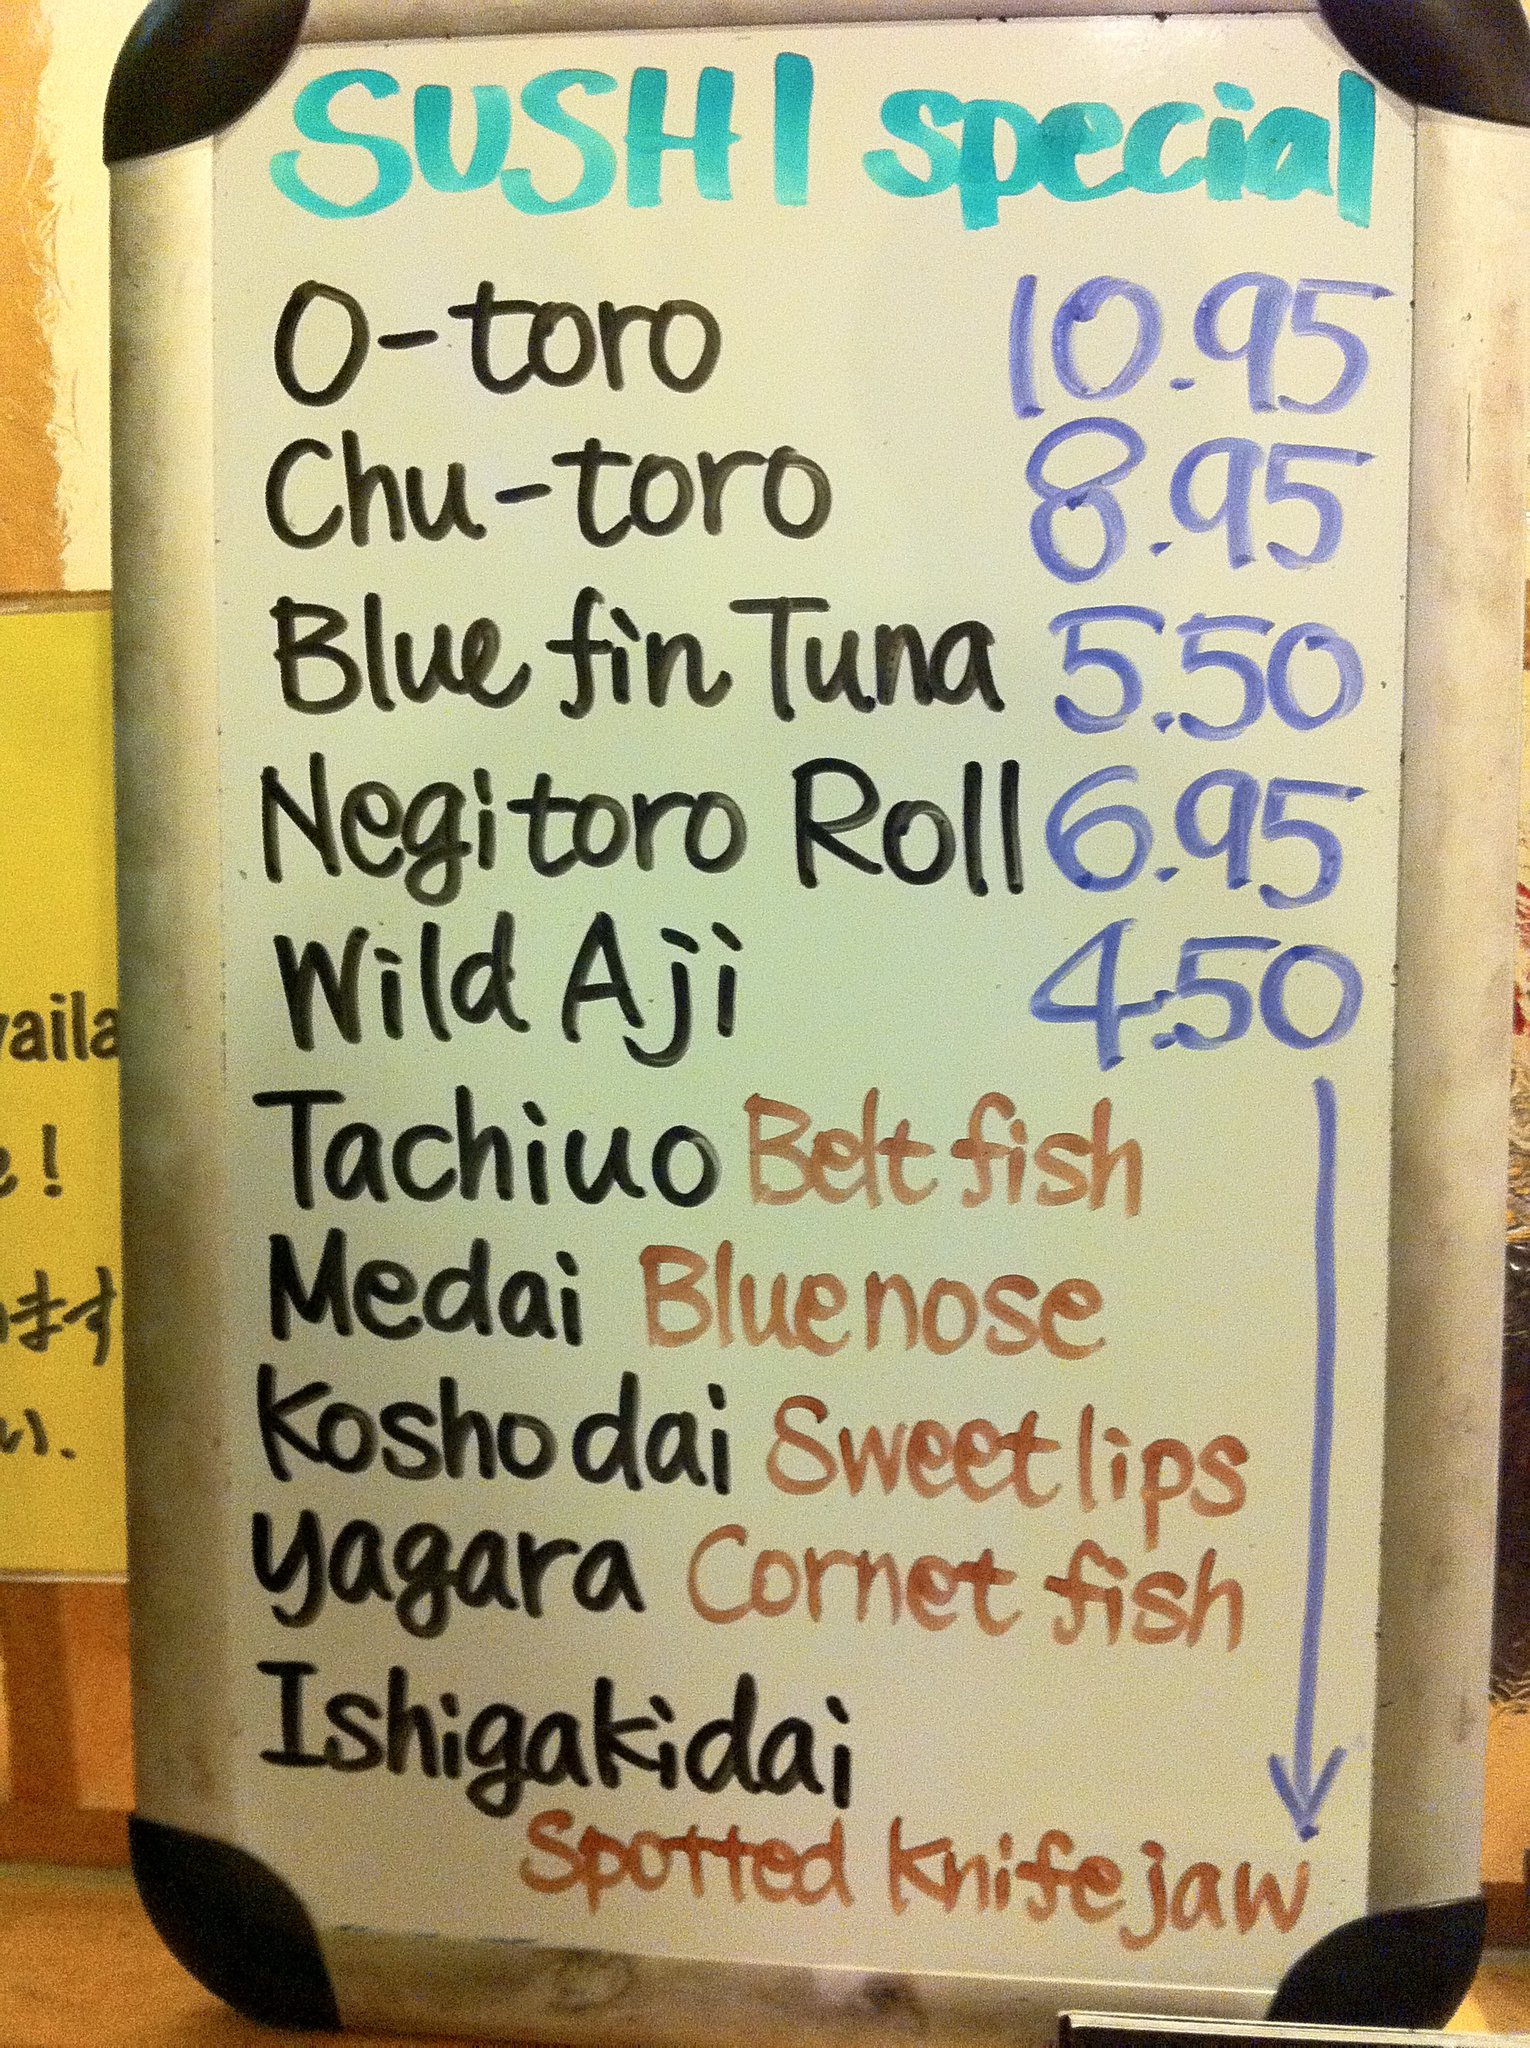 SUSHI special
O-toro 10.95
Chu-toro 8.95
Blue fin Tuna 5.50
Negitoro Roll 6.95
Wild Aji 4.50
Tachiuo Belt fish
Medai Bluenose
Koshodai Sweetlips
Yagara Cornet fish
Ishigakidai
Spotted Knifejaw
!
ます